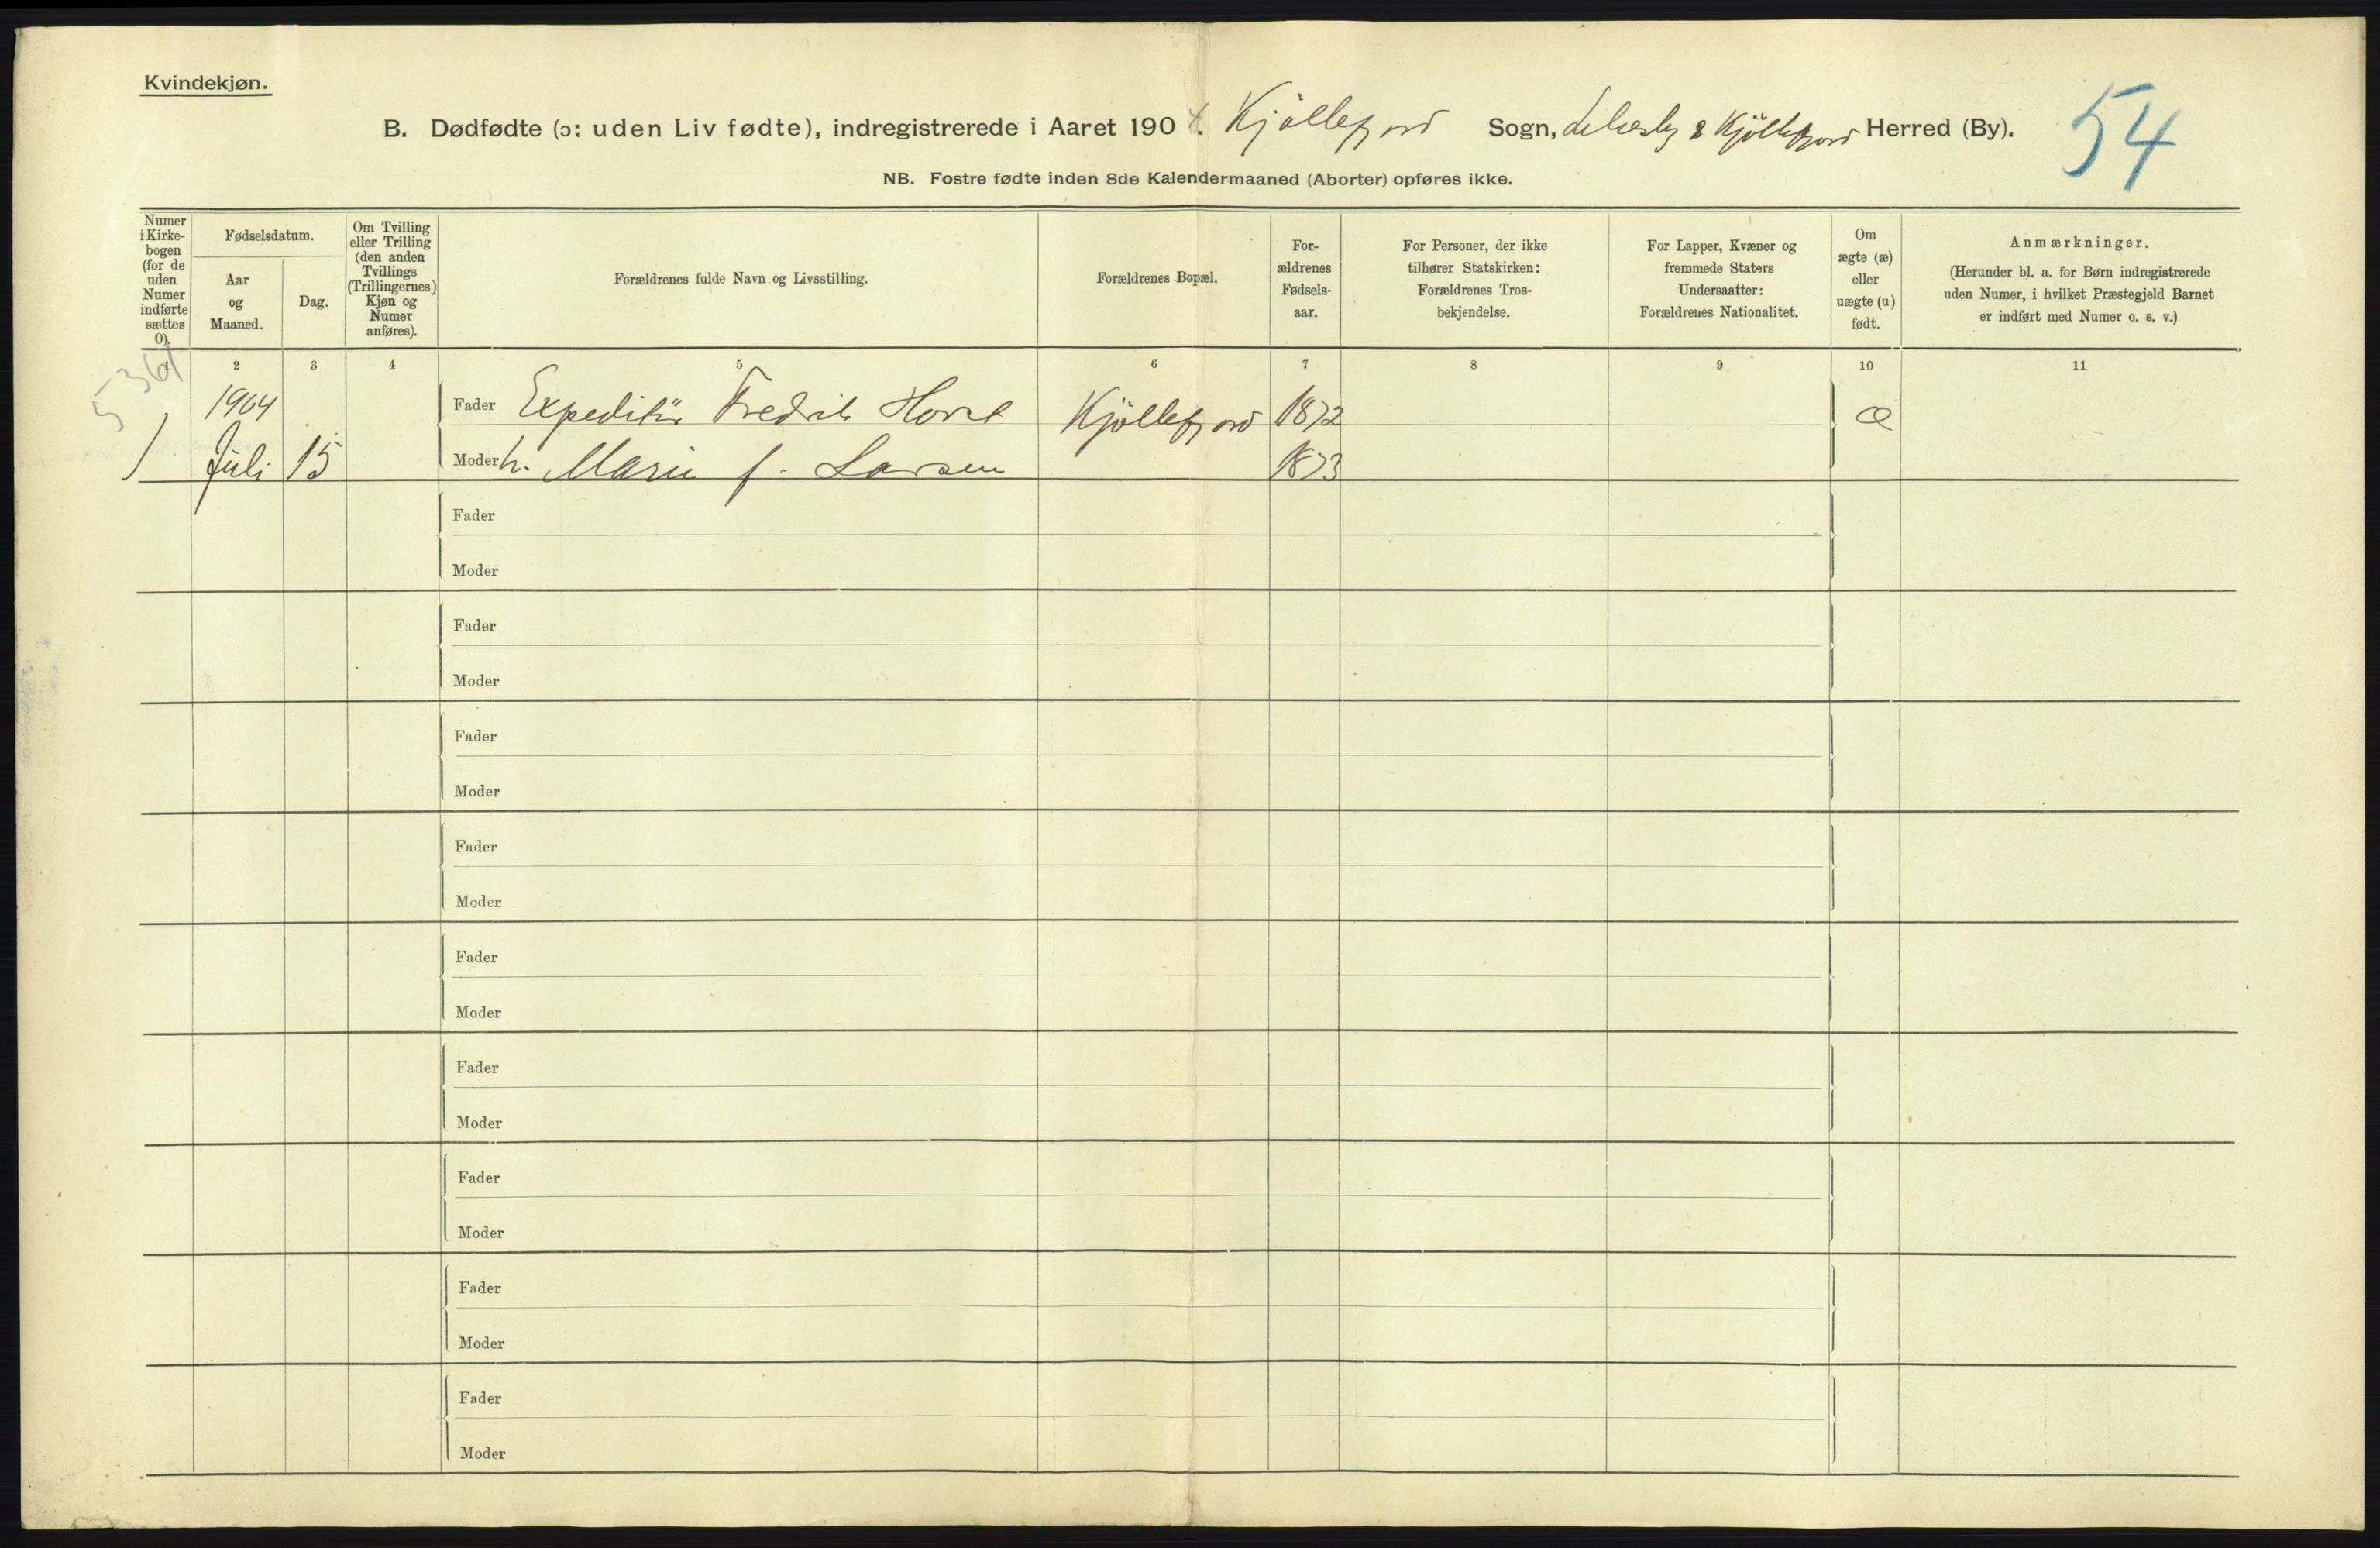 Kvindekjøn.
B. Dødfødte (ɔ: uden Liv fødte), indregistrerede i Aaret 1904. Kjöllefjord Sogn, Lebesby & Kjöllefjord Herred (By).
54
NB. Fostre fødte inden 8de Kalendermaaned (Aborter) opføres ikke.
Numer
i Kirke-
bogen
(for de
uden
Numer
indførte
sættes
0).
Fødselsdatum.
Aar
og
Maaned.
Dag.
Om Tvilling
eller Trilling
(den anden
Tvillings
(Trillingernes)
Kjøn og
Numer
anføres).
Forældrenes fulde Navn og Livsstilling.
Forældrenes Bopæl.
For-
ældrenes
Fødsels-
aar.
For Personer, der ikke
tilhører Statskirken:
Forældrenes Tros-
bekjendelse.
For Lapper, Kvæner og
fremmede Staters
Undersaatter:
Forældrenes Nationalitet.
Om
ægte (æ)
eller
uægte (u)
født.
Anmærkninger.
(Herunder bl. a. for Børn indregistrerede
uden Numer, i hvilket Præstegjeld Barnet
er indført med Numer o. s. v.)
1 2 3 4 5 6 7 8 9 10 11
5361
1904 Fader Expeditür Fredrik Horst Kjöllefjord 1872 æ
1 Juli 15 Moder h. Marie f. Larsen 1873
Fader
Moder
Fader
Moder
Fader
Moder
Fader
Moder
Fader
Moder
Fader
Moder
Fader
Moder
Fader
Moder
Fader
Moder